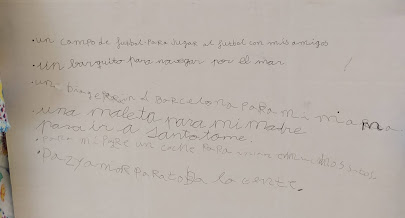 ·un campo de futbol para jugar al futbol con mis amigos
·un barquito para navegar por el mar
·un en el Barcelona para mi
·una maleta para mi madre
para ir a santotome.
·para mi padre un coche para
·paz y amor para toda la gente.